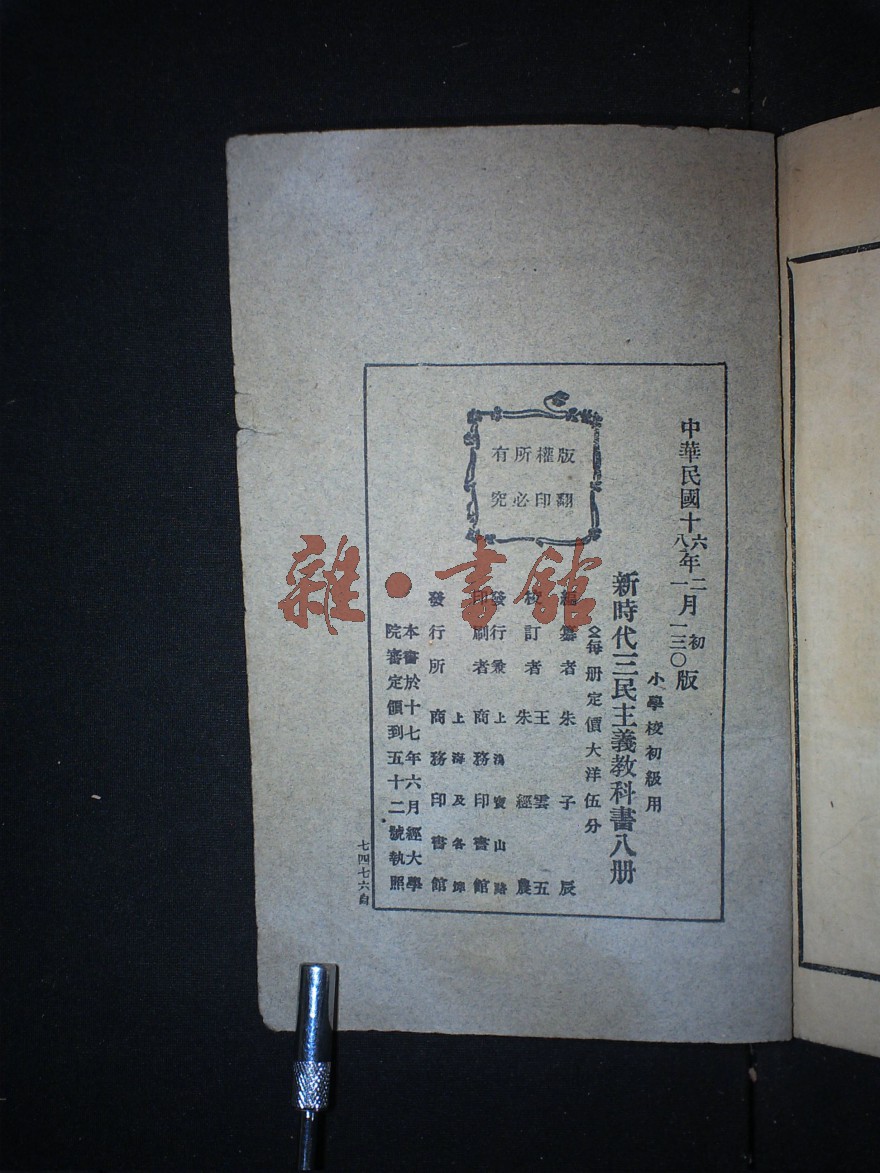 中華民國十六年二月初版
中華民國十八年一月一三〇版
小學校初級用
新時代三民主義教科書八册
每册定價大洋伍分
版權所有
翻印必究
編纂者 朱子辰
校訂者 王雲五 朱經農
發行兼印刷者 上海寶山路 商務印書館
發行所 上海及各埠 商務印書館
本書於十七年六月經大學
院審定領到五十二號執照
七四七六自
雜·書館